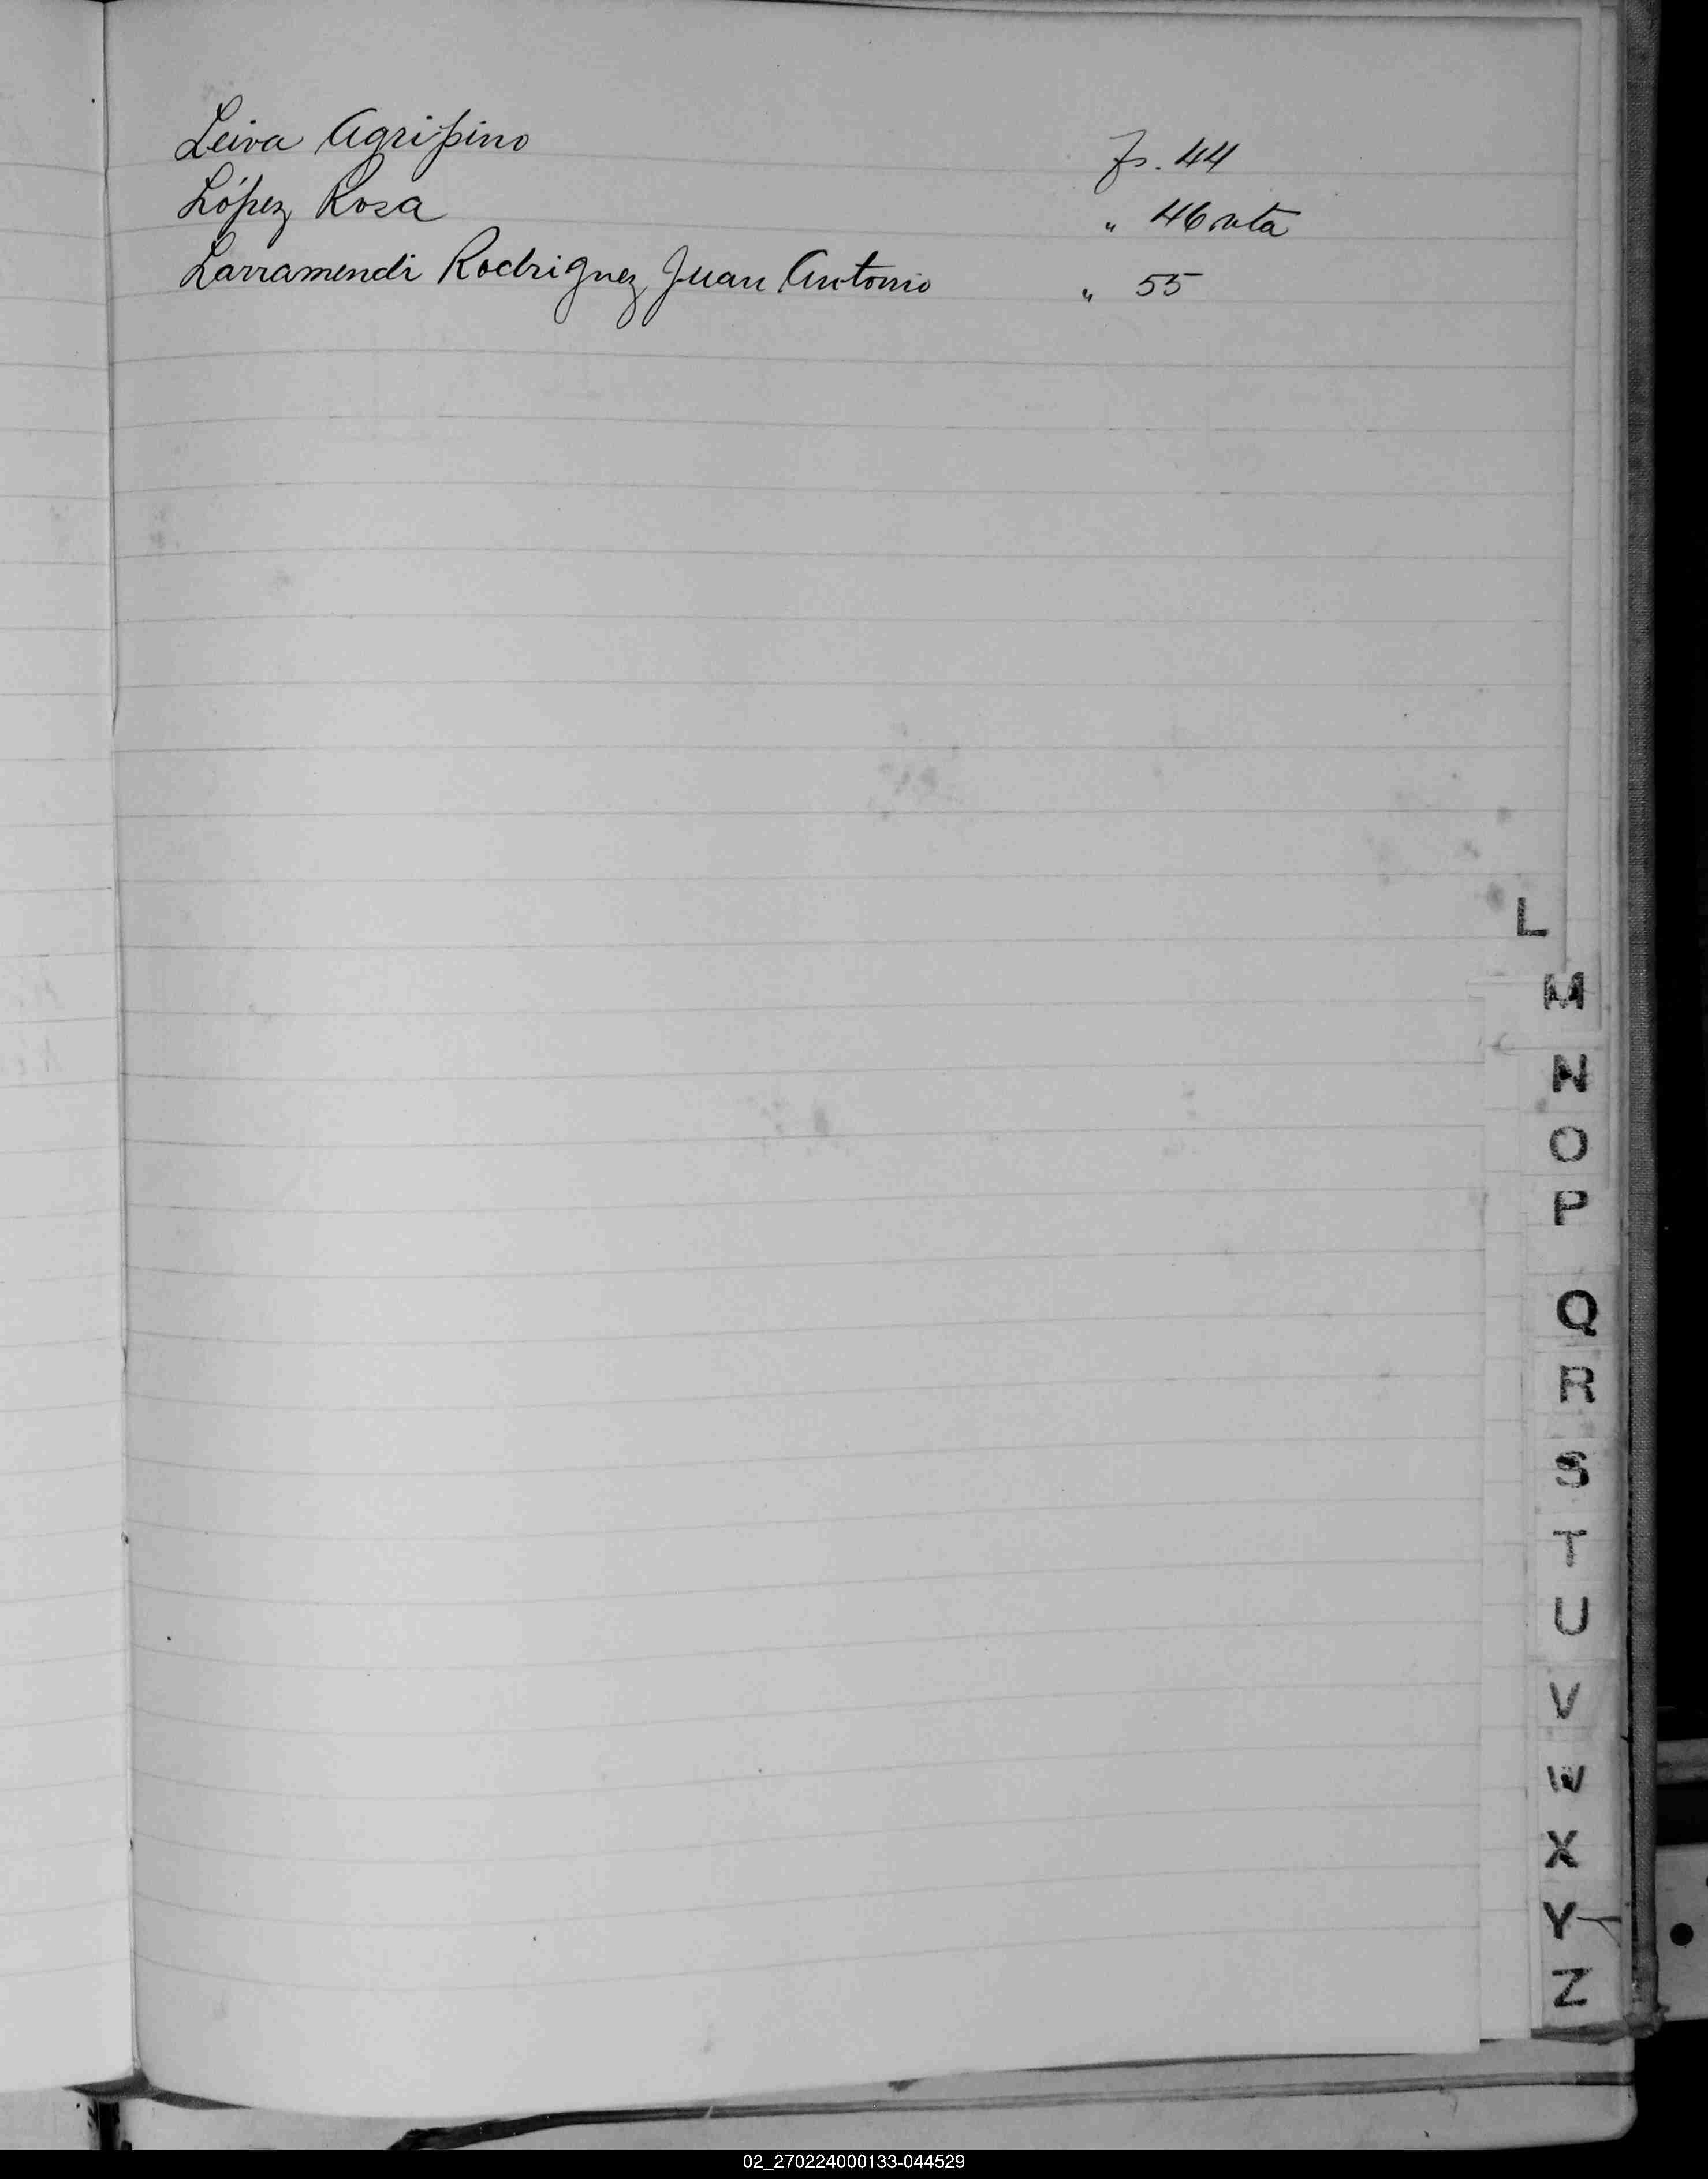 Leiva Agripino fs. 44
López Rosa " 46 vta
Larramendi Rodriguez Juan Antonio " 55
L
M
N
O
P
Q
R
S
T
U
V
W
X
Y
Z
02_270224000133-044529